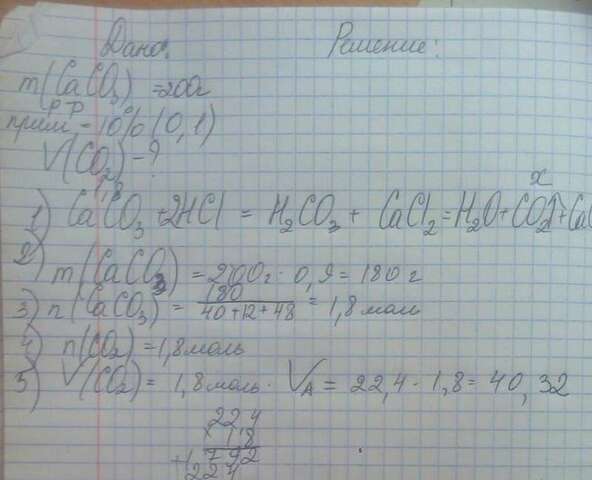 Дано: Решение:
m(CaCO₃) = 200г
р-р
прим - 10% (0,1)
V(CO₂) - ?
1,8 x
1) CaCO₃ + 2HCl = H₂CO₃ + CaCl₂ = H₂O + CO₂↑ + Ca
2) m(CaCO₃) = 200г · 0,9 = 180 г
3) n(CaCO₃) = 180 / 40+12+48 = 1,8 моль
4) n(CO₂) = 1,8 моль
5) V(CO₂) = 1,8 моль · VA = 22,4 · 1,8 = 40,32
224
× 18
+ 1792
224